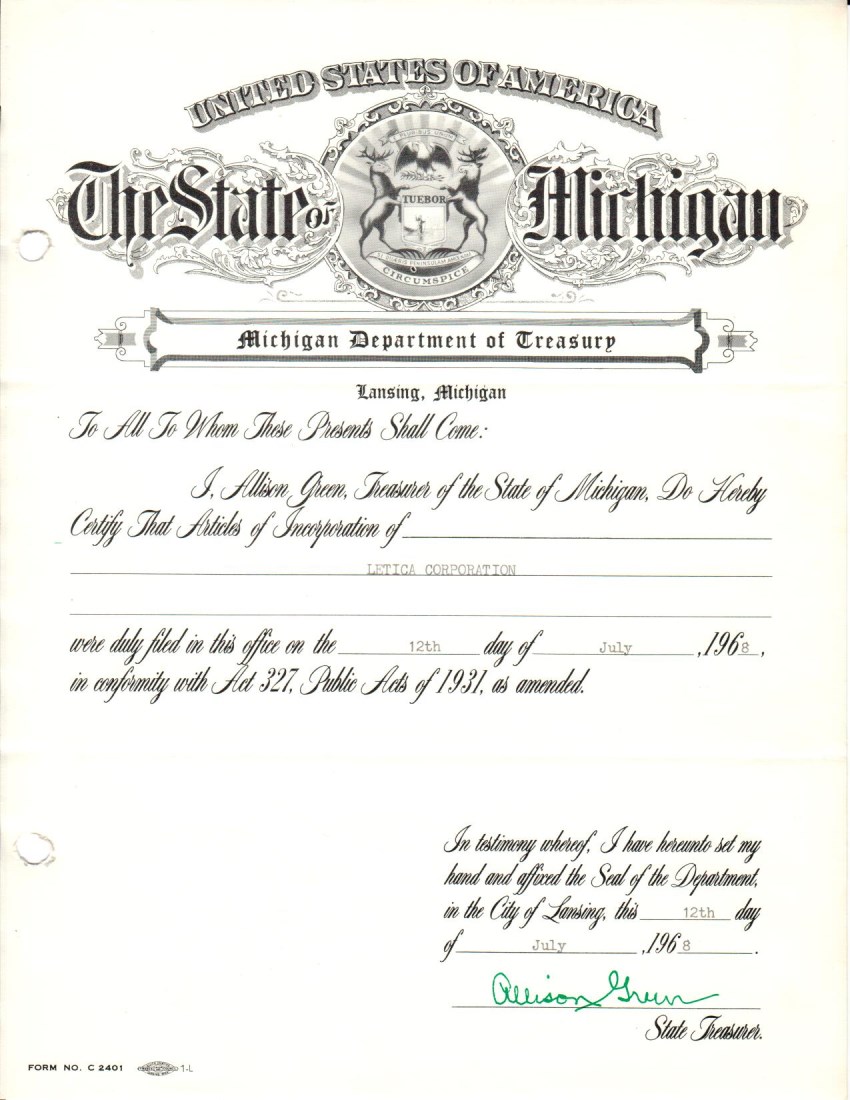 UNITED STATES OF AMERICA
The State of Michigan
TUEBOR
SI QUAERIS PENINSULAM AMOENAM
CIRCUMSPICE
Michigan Department of Treasury
Lansing, Michigan
To All To Whom These Presents Shall Come:
I, Allison Green, Treasurer of the State of Michigan, Do Hereby
Certify That Articles of Incorporation of
LETICA CORPORATION
were duly filed in this office on the 12th day of July, 1968,
in conformity with Act 327, Public Acts of 1931, as amended.
In testimony whereof, I have hereunto set my
hand and affixed the Seal of the Department,
in the City of Lansing, this 12th day
of July, 1968.
Allison Green
State Treasurer.
FORM NO. C 2401 1-L